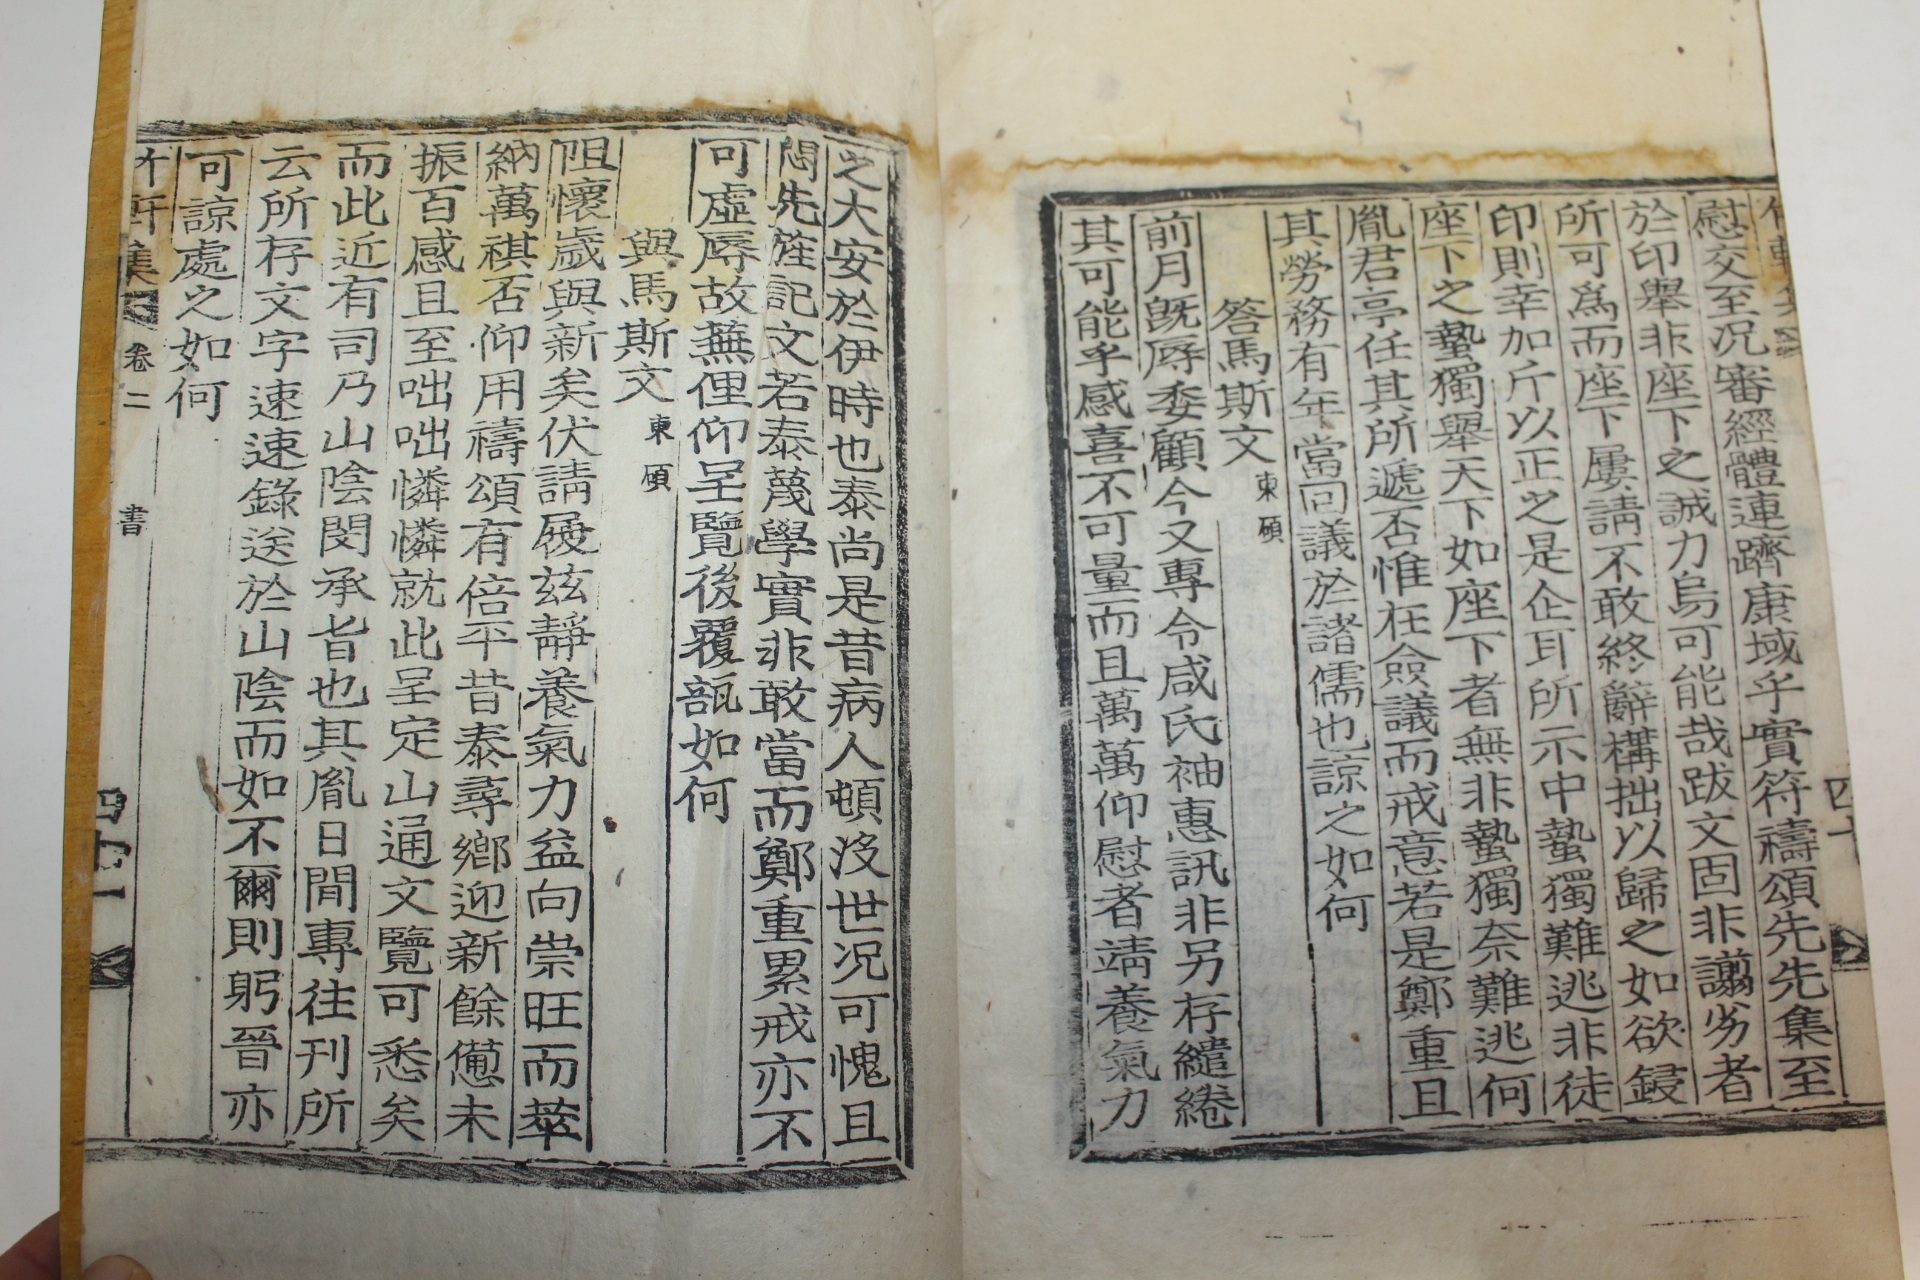 慰交至况審經體連躋康域乎實符禱頌先先集至
於印舉非座下之誠力烏可能哉跋文固非謭劣者
所可爲而座下屢請不敢終辭構拙以歸之如欲鋟
印則幸加斤以正之是企耳所示中蟄獨難逃非徒
座下之蟄獨舉天下如座下者無非蟄獨奈難逃何
胤君亭任其所遞否惟在僉議而戒意若是鄭重且
其勞務有年當回議於諸儒也諒之如何
答馬斯文 東碩
前月旣辱委顧今又專令咸氏袖惠訊非另存繾綣
其可能乎感喜不可量而且萬萬仰慰者靖養氣力
四十
之大安於伊時也泰尚是昔病人頓沒世况可愧且
悶先旌記文若泰蔑學實非敢當而鄭重累戒亦不
可虛辱故蕪俚仰呈覽後覆瓿如何
與馬斯文 東碩
阻懷歲與新矣伏請履玆靜養氣力益向崇旺而萃
納萬祺否仰用禱頌有倍平昔泰尋鄉迎新餘憊未
振百感且至咄咄憐憐就此呈定山通文覽可悉矣
而此近有司乃山陰閔承旨也其胤日間專往刊所
云所存文字速速錄送於山陰而如不爾則躬晉亦
可諒處之如何
軒集 卷二 書 四十一